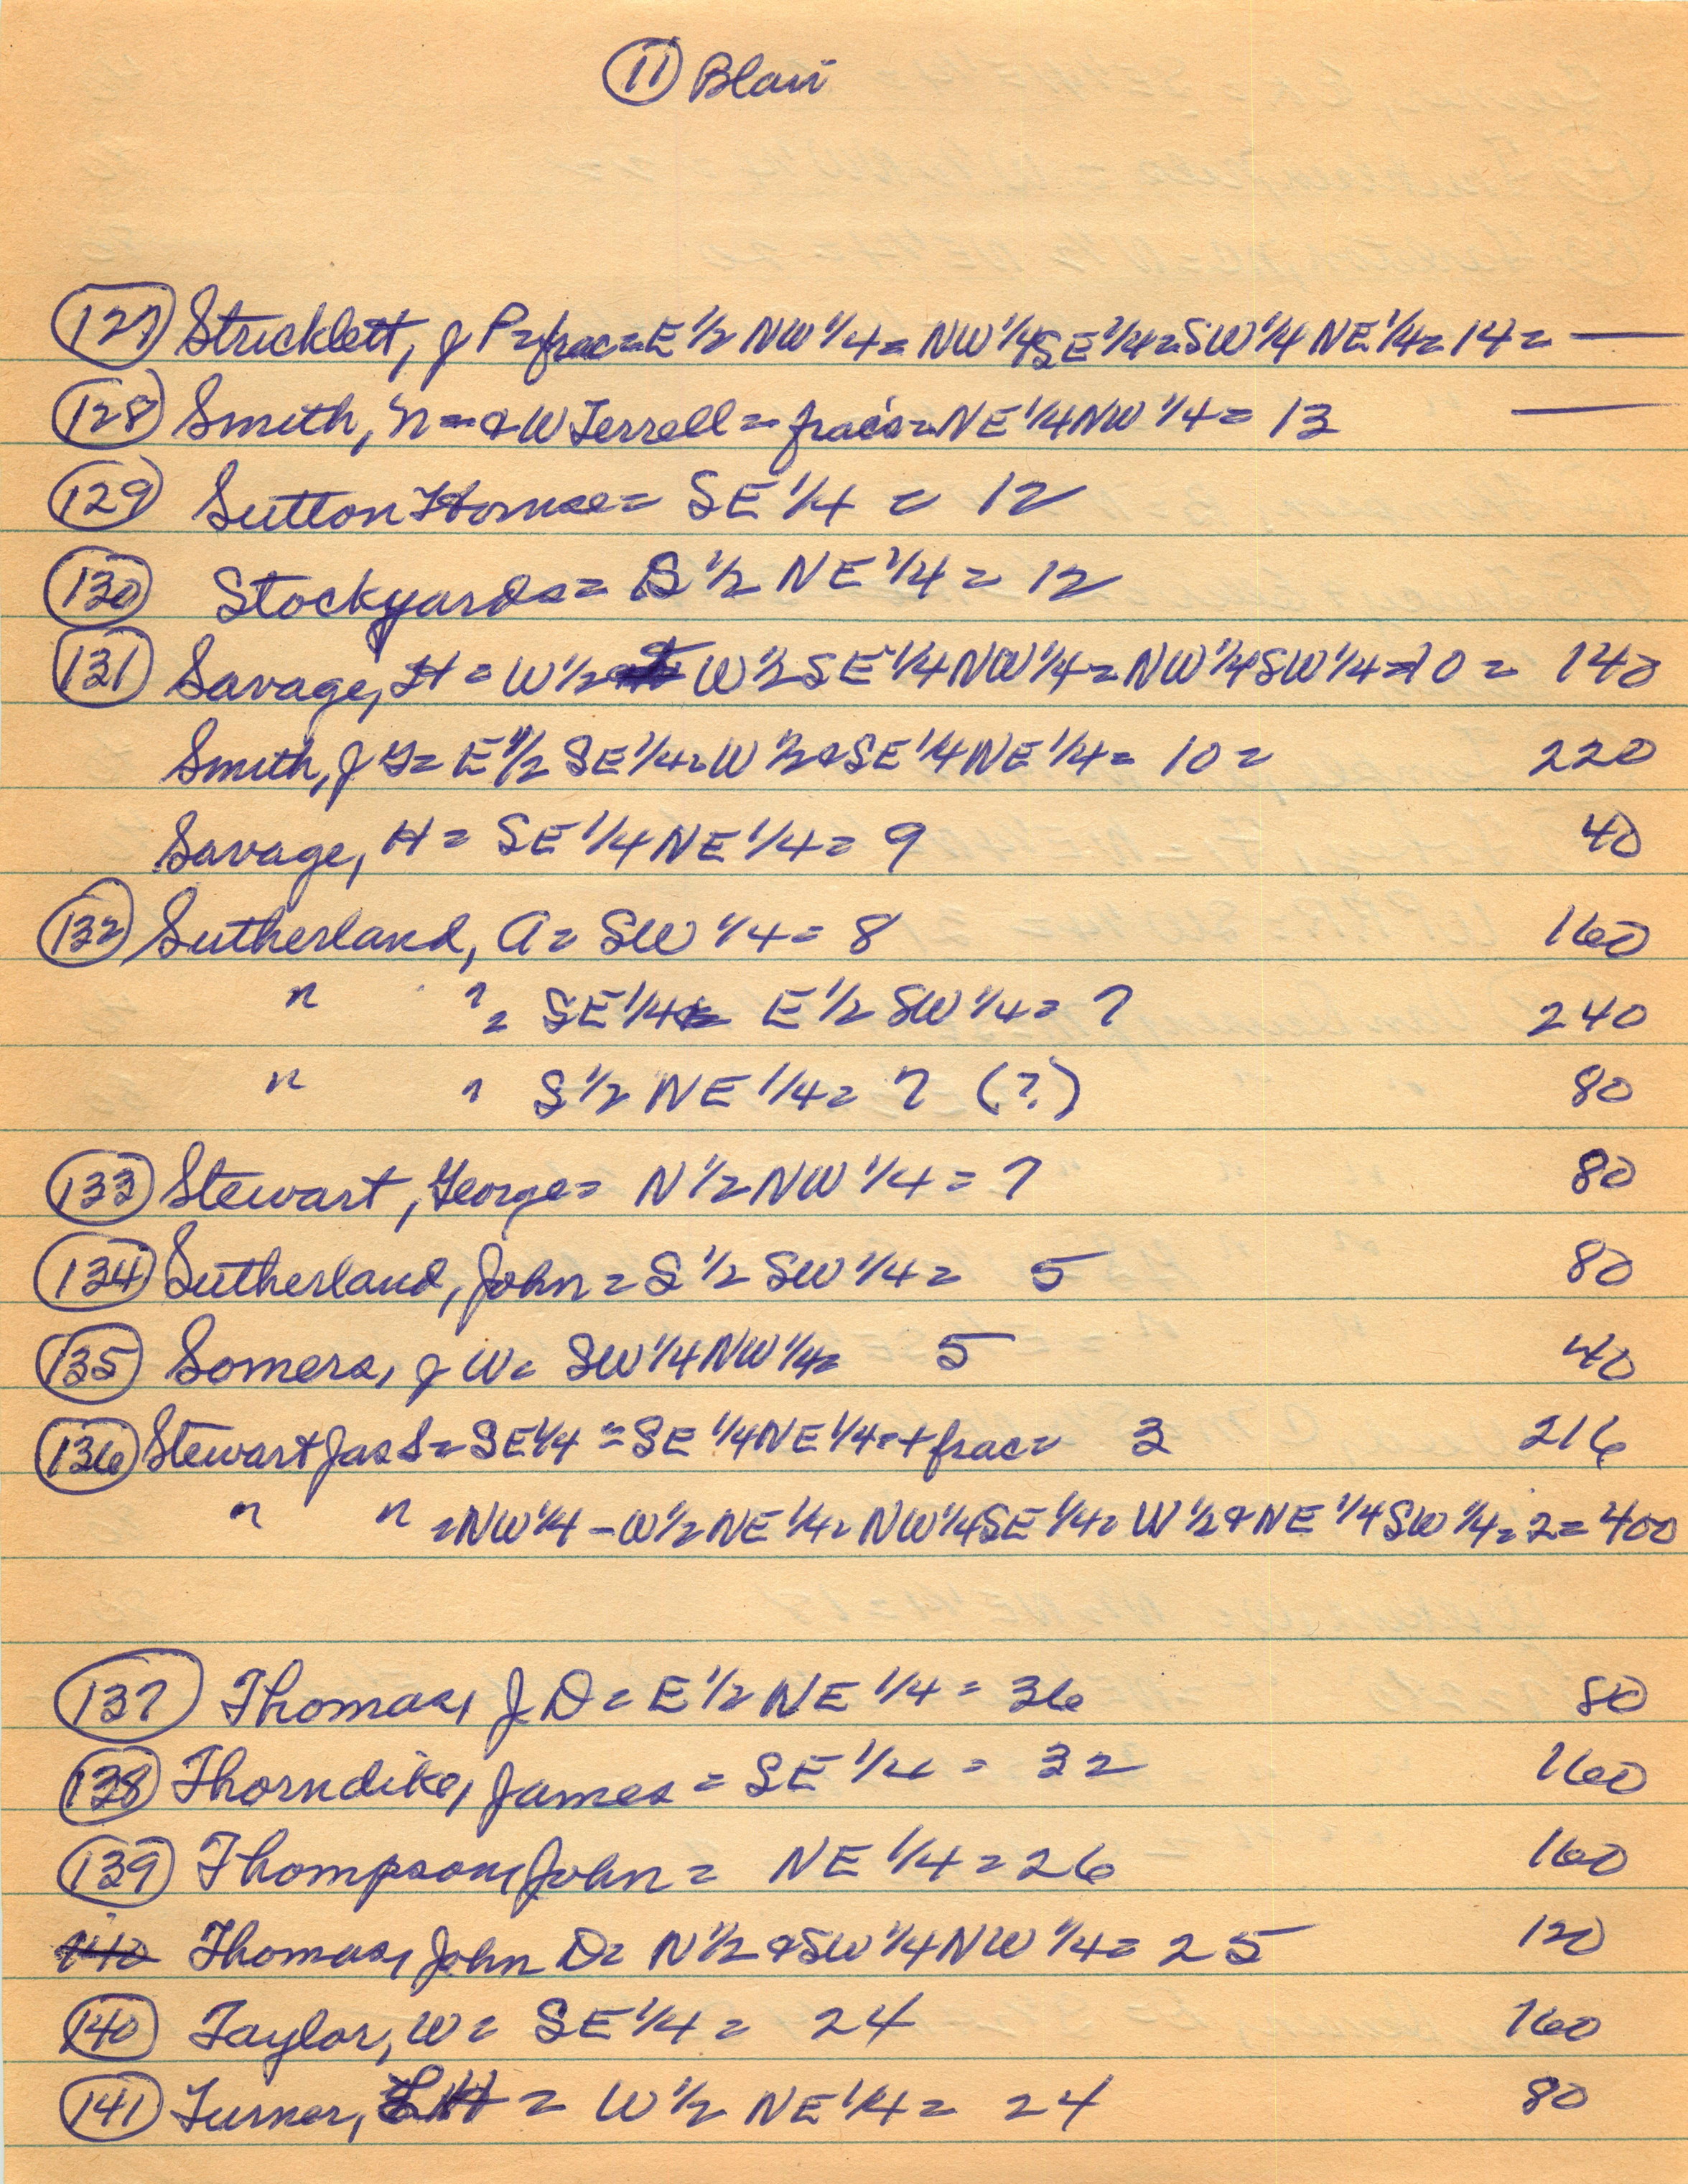 11 Blair
127 Stricklett, J P = frac = E 1/2 NW 1/4 = NW 1/4 SE 1/4 = SW 1/4 NE 1/4 = 14 = —
128 Smith, N = & W Terrell = frac's = NE 1/4 NW 1/4 = 13 —
129 Sutton = SE 1/4 = 12
130 Stockyards = S 1/2 NE 1/4 = 12
131 Savage, H = W 1/2 W 1/2 SE 1/4 NW 1/4 = NW 1/4 SW 1/4 = 10 = 140
Smith, J G = E 1/2 SE 1/4 = W 1/2 & SE 1/4 NE 1/4 = 10 = 220
Savage, H = SE 1/4 NE 1/4 = 9 40
132 Sutherland, A = SW 1/4 = 8 160
" " = SE 1/4 E 1/2 SW 1/4 = 7 240
" " S 1/2 NE 1/4 = 7 (?) 80
133 Stewart, George = N 1/2 NW 1/4 = 7 80
134 Sutherland, John = S 1/2 SW 1/4 = 5 80
135 Somers, J W = SW 1/4 NW 1/4 = 5 40
136 Stewart Jas S = SE 1/4 = SE 1/4 NE 1/4 = + frac = 3 216
" " = NW 1/4 - W 1/2 NE 1/4 = NW 1/4 SE 1/4 = W 1/2 & NE 1/4 SW 1/4 = 2 = 400
137 Thomas, J D = E 1/2 NE 1/4 = 36 80
138 Thorndike, James = SE 1/4 = 32 160
139 Thompson, John = NE 1/4 = 26 160
140 Thomas, John D = N 1/2 & SW 1/4 NW 1/4 = 25 120
140 Taylor, W = SE 1/4 = 24 160
141 Turner, = W 1/2 NE 1/4 = 24 80